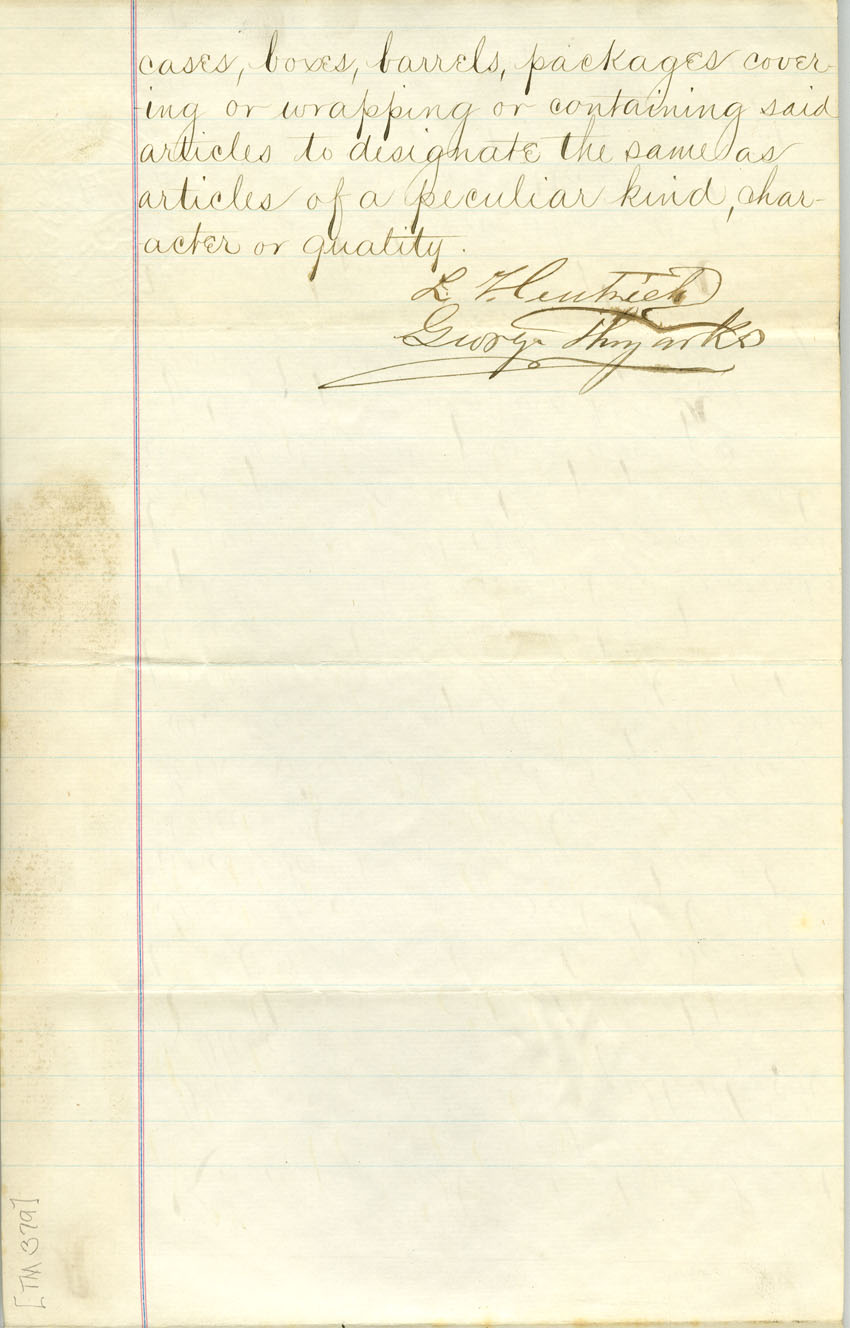 cases, boxes, barrels, packages cover-
ing or wrapping or containing said
articles to designate the same as
articles of a peculiar kind, char-
acter or quality.
L. F. Hentrich
George
[TM 379]